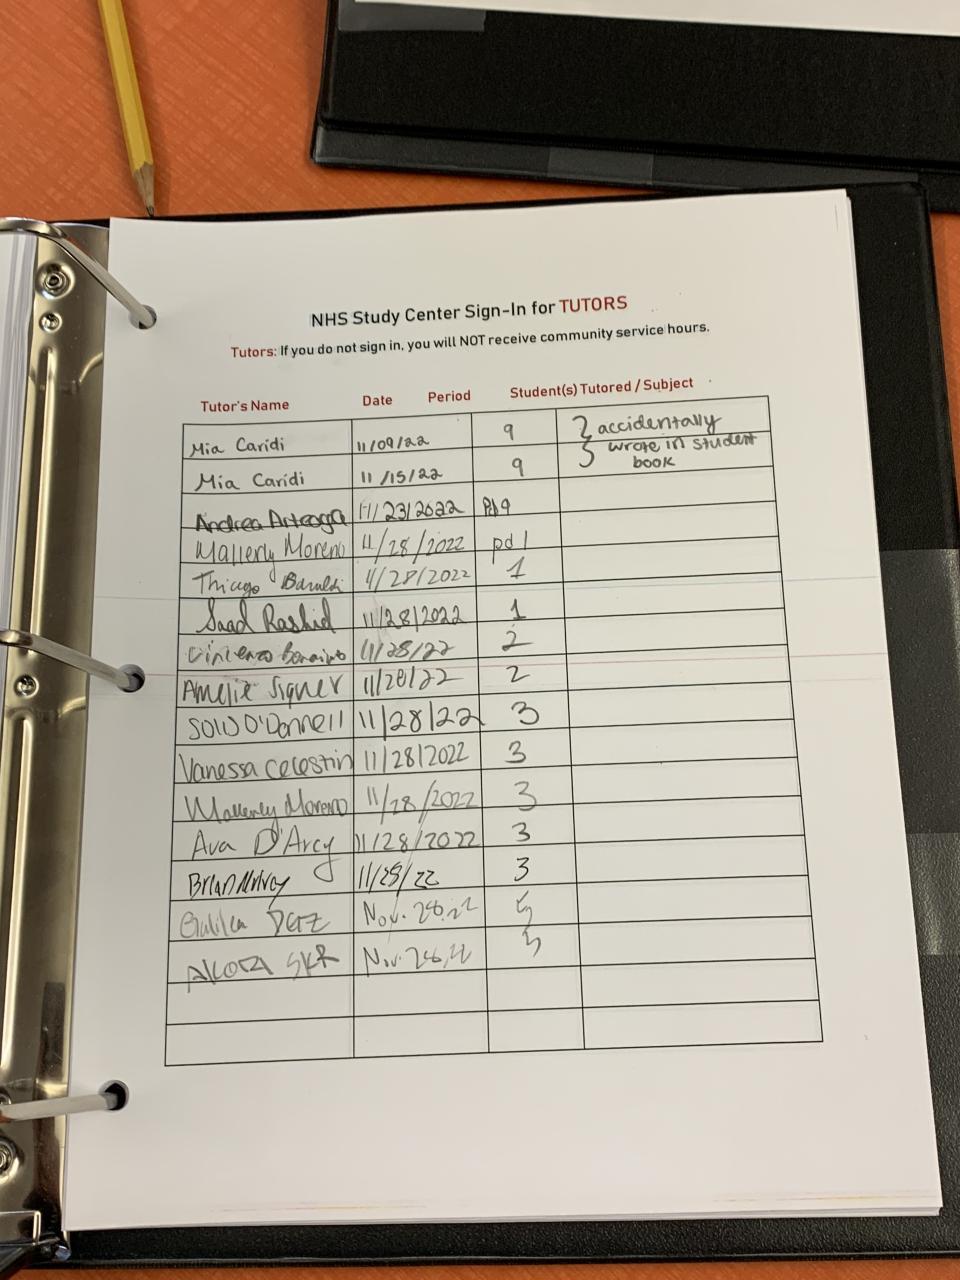 NHS Study Center Sign-In for TUTORS
Tutors: If you do not sign in, you will NOT receive community service hours.
Tutor's Name Date Period Student(s) Tutored / Subject
Mia Caridi 11/09/22 9 accidentally
wrote in student
book
Mia Caridi 11/15/22 9
Andrea Arteaga 11/23/2022 Pd 9
Mallerly Moreno 11/28/2022 pd 1
Thiago 11/28/2022 1
Saad Rashid 11/28/2022 1
Vincenzo 11/28/22 2
Amelie Signer 11/28/22 2
O'Donnell 11/28/22 3
Vanessa Celestin 11/28/2022 3
Mallerly Moreno 11/28/2022 3
Ava D'Arcy 11/28/2022 3
Brian 11/28/22 3
Nov. 28, 22
Nov. 28, 22